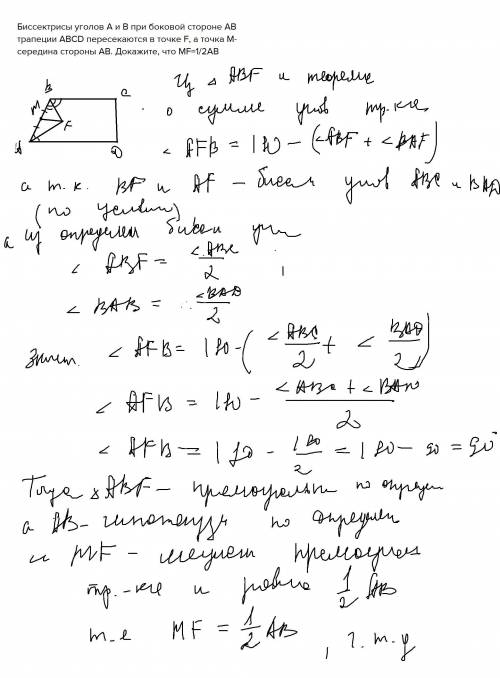 Биссектрисы уголов А и В при боковой стороне АВ
трапеции ABCD пересекаются в точке F, а точка М-
середина стороны АВ. Докажите, что MF=1/2AB
B C
M F
A D
Из △ ABF и теореме
о сумме углов тр.-ке
∠ AFB = 180 − (∠ABF + ∠BAF)
а т.к. BF и AF – бисс углов ABC и BAD
(по условию)
а из определен биссе угл
∠ ABF = ∠ABC / 2
∠ BAB = ∠BAD / 2
Значит. ∠ AFB = 180 − (∠ABC / 2 + ∠ BAD / 2)
∠ AFB = 180 − (∠ABC + ∠BAD) / 2
∠ AFB = 180 − 180 / 2 = 180 − 90 = 90°
Тогда △ ABF – прямоугольн по опред
а AB – гипотенуза по определ
и MF – медиан прямоугол
тр.-ке и равна 1/2 AB
т-е MF = 1/2 AB , ч.т.д